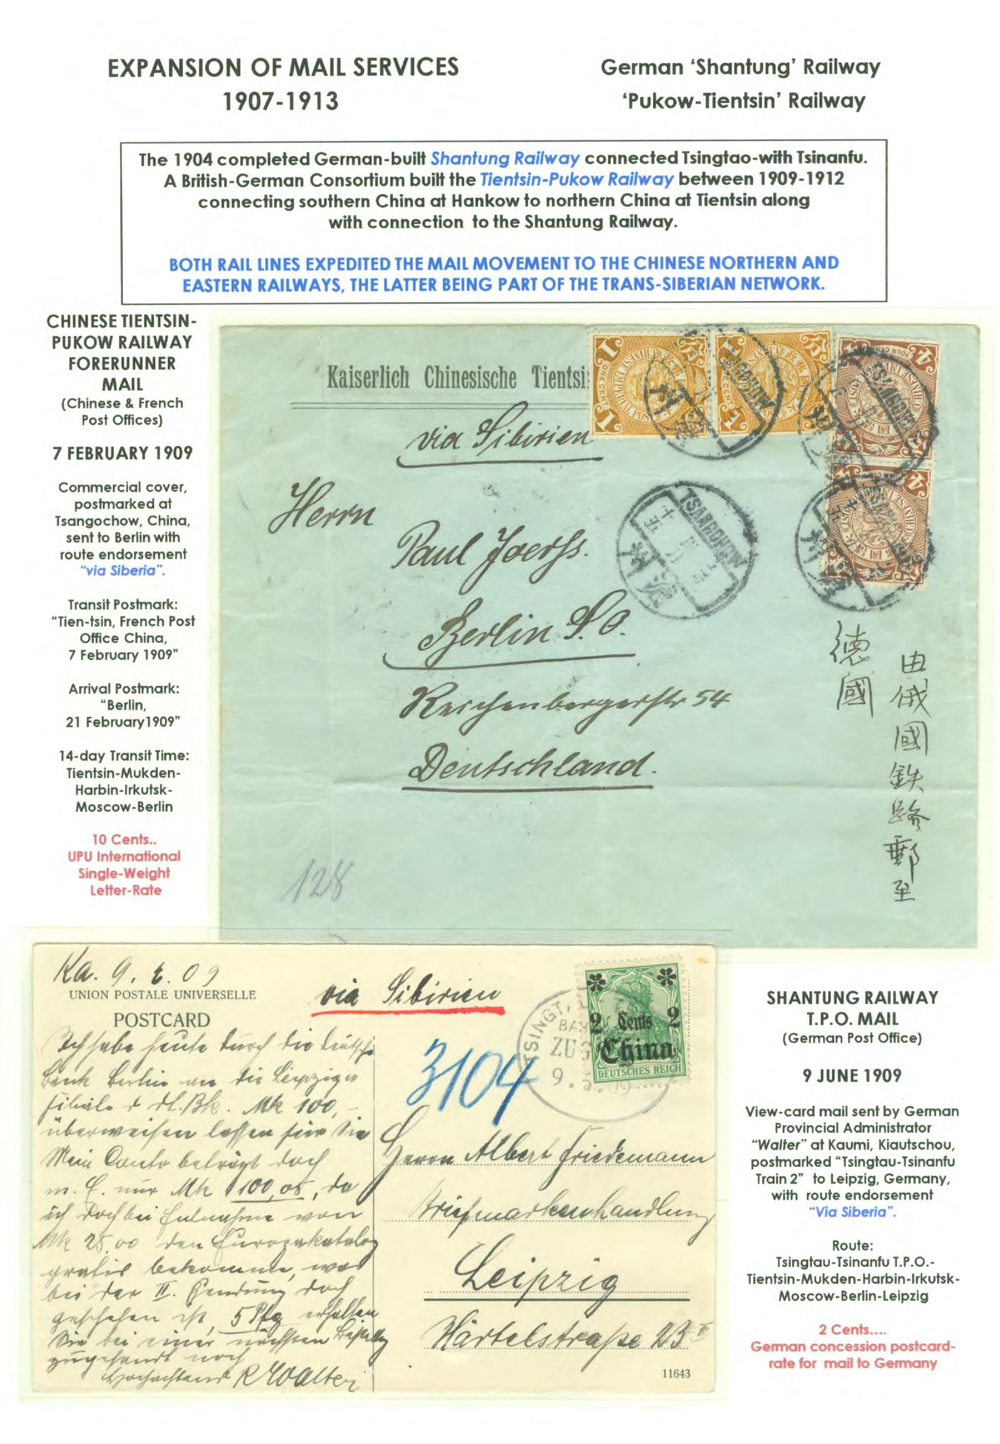 EXPANSION OF MAIL SERVICES
1907-1913
German 'Shantung' Railway
'Pukow-Tientsin' Railway
The 1904 completed German-built Shantung Railway connected Tsingtao-with Tsinanfu.
A British-German Consortium built the Tientsin-Pukow Railway between 1909-1912
connecting southern China at Hankow to northern China at Tientsin along
with connection to the Shantung Railway.
BOTH RAIL LINES EXPEDITED THE MAIL MOVEMENT TO THE CHINESE NORTHERN AND
EASTERN RAILWAYS, THE LATTER BEING PART OF THE TRANS-SIBERIAN NETWORK.
CHINESE TIENTSIN-
PUKOW RAILWAY
FORERUNNER
MAIL
(Chinese & French
Post Offices)
7 FEBRUARY 1909
Commercial cover,
postmarked at
Tsangochow, China,
sent to Berlin with
route endorsement
"via Siberia".
Transit Postmark:
"Tien-tsin, French Post
Office China,
7 February 1909"
Arrival Postmark:
"Berlin,
21 February1909"
14-day Transit Time:
Tientsin-Mukden-
Harbin-Irkutsk-
Moscow-Berlin
10 Cents..
UPU International
Single-Weight
Letter-Rate
Kaiserlich Chinesische Tientsi
via Sibirien
Herrn
Paul Joerss.
Berlin S.O.
Reichenbergerstr 54
Deutschland.
TSANGCHOW
德國
由俄國鉄路郵至
128
Ka. 9. 6. 09
UNION POSTALE UNIVERSELLE
POSTCARD
via Sibirien
3104
2 Cents 2
China
DEUTSCHES REICH
TSINGT
ZUG
9.
Ich habe heute durch die Deutsche
Bank Berlin an die Leipziger
Filiale d. Dt. Bk. Mk 100,-
überweisen lassen für Sie
Mein Conto beträgt doch
m. E. nur Mk 100,05, da
ich doch bei Entnahme von
Mk 25.00 den Europakatalog
gratis bekomme, was
bei der II. Sendung doch
geschehen ist, 5 Pfg erhalten
Sie bei einer nächsten
zugesandt noch
Hochachtend R Walter
Herrn Albert Friedemann
Briefmarkenhandlung
Leipzig
Härtelstraße 23
11643
SHANTUNG RAILWAY
T.P.O. MAIL
(German Post Office)
9 JUNE 1909
View-card mail sent by German
Provincial Administrator
"Walter" at Kaumi, Kiautschou,
postmarked "Tsingtau-Tsinanfu
Train 2" to Leipzig, Germany,
with route endorsement
"Via Siberia".
Route:
Tsingtau-Tsinanfu T.P.O.-
Tientsin-Mukden-Harbin-Irkutsk-
Moscow-Berlin-Leipzig
2 Cents....
German concession postcard-
rate for mail to Germany